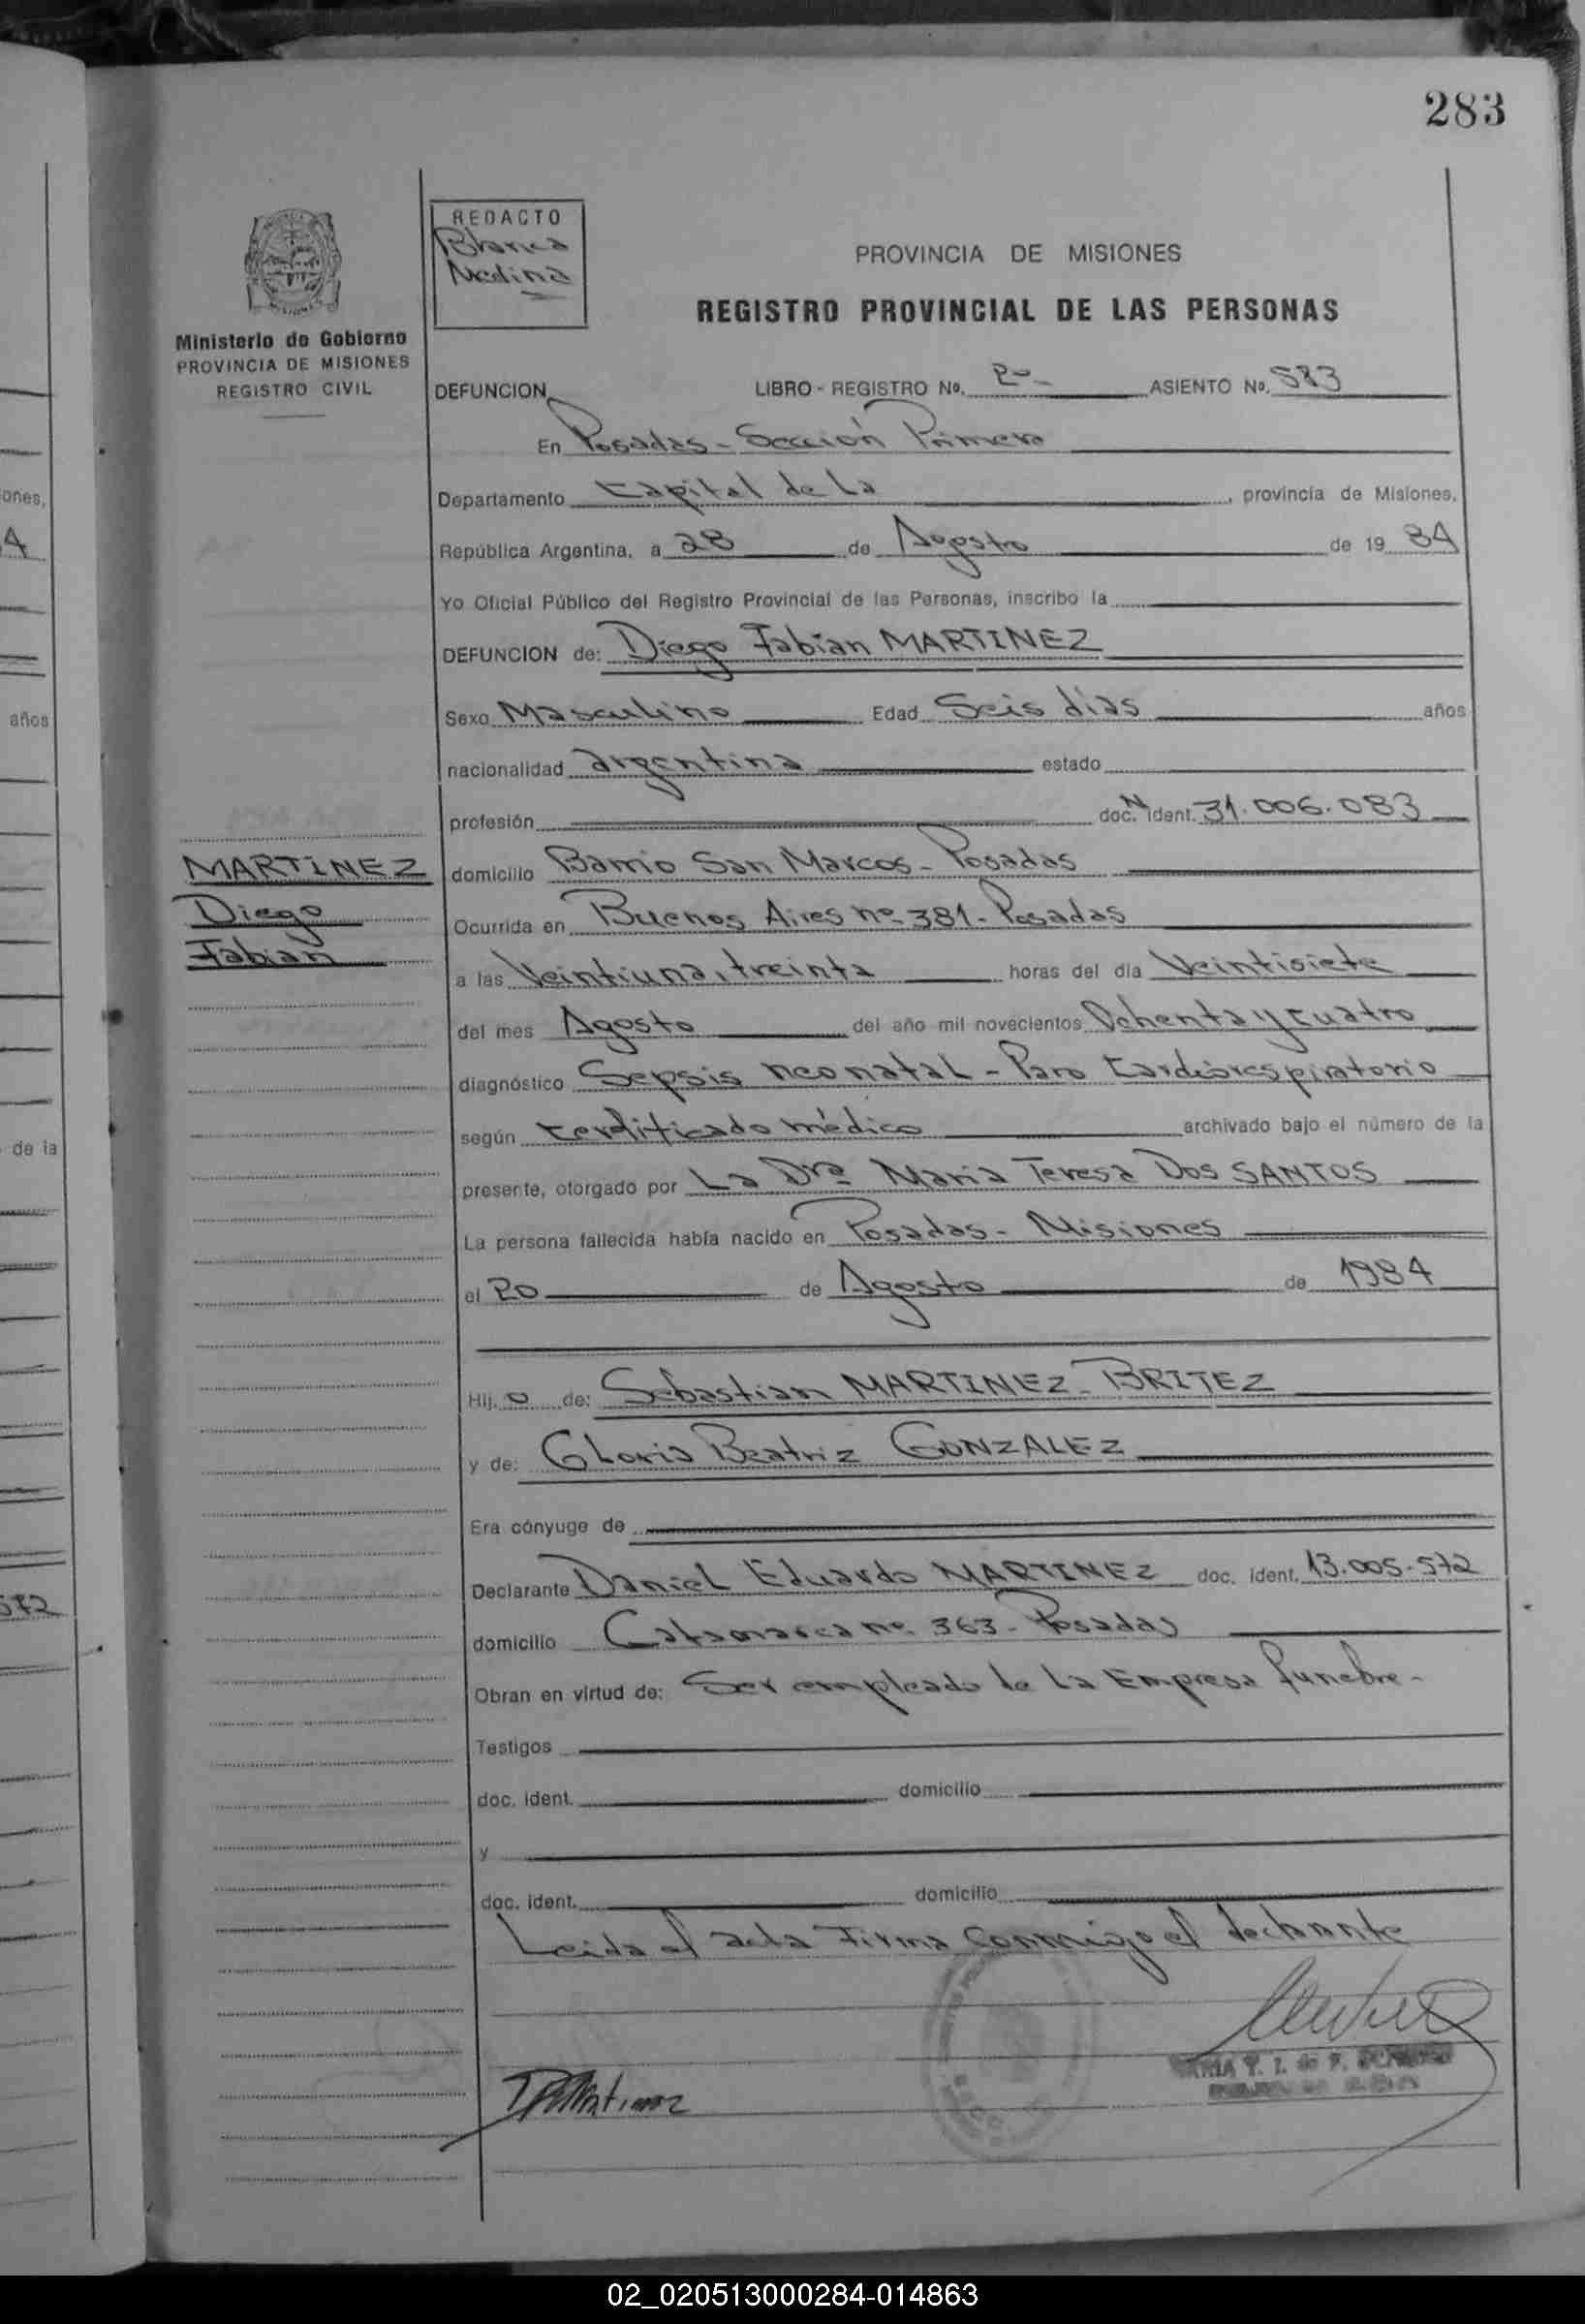 283
REDACTO
Blanca
Medina
PROVINCIA DE MISIONES
REGISTRO PROVINCIAL DE LAS PERSONAS
Ministerio de Gobierno
PROVINCIA DE MISIONES
REGISTRO CIVIL
DEFUNCION LIBRO - REGISTRO No. ASIENTO No. 583
En Posadas - Sección Primera
Departamento Capital de La , provincia de Misiones,
República Argentina, a 28 de Agosto de 19 84
Yo Oficial Público del Registro Provincial de las Personas, inscribo la
DEFUNCION de: Diego Fabian MARTINEZ
Sexo Masculino Edad Seis días años
nacionalidad argentina estado
profesión doc. N ident. 31.006.083
MARTINEZ
Diego
Fabian
domicilio Barrio San Marcos - Posadas
Ocurrida en Buenos Aires nº 381 - Posadas
a las Veintiuna, treinta horas del día Veintisiete
del mes Agosto del año mil novecientos Ochenta y cuatro
diagnóstico Sepsis neonatal - Paro Cardiorespiratorio
según certificado médico archivado bajo el número de la
presente, otorgado por La Dra María Teresa Dos SANTOS
La persona fallecida había nacido en Posadas - Misiones
el 20 de Agosto de 1984
Hij o de: Sebastian MARTINEZ - BRITEZ
y de: Gloria Beatriz GONZALEZ
Era cónyuge de
Declarante Daniel Eduardo MARTINEZ doc. ident. 13.005.572
domicilio Catamarca nº 363 - Posadas
Obran en virtud de: Ser empleado de La Empresa funebre -
Testigos
doc. ident. domicilio
y
doc. ident. domicilio
Leida el acta Firma conmigo el declarante
ones,
4
años
de la
572
02_020513000284-014863